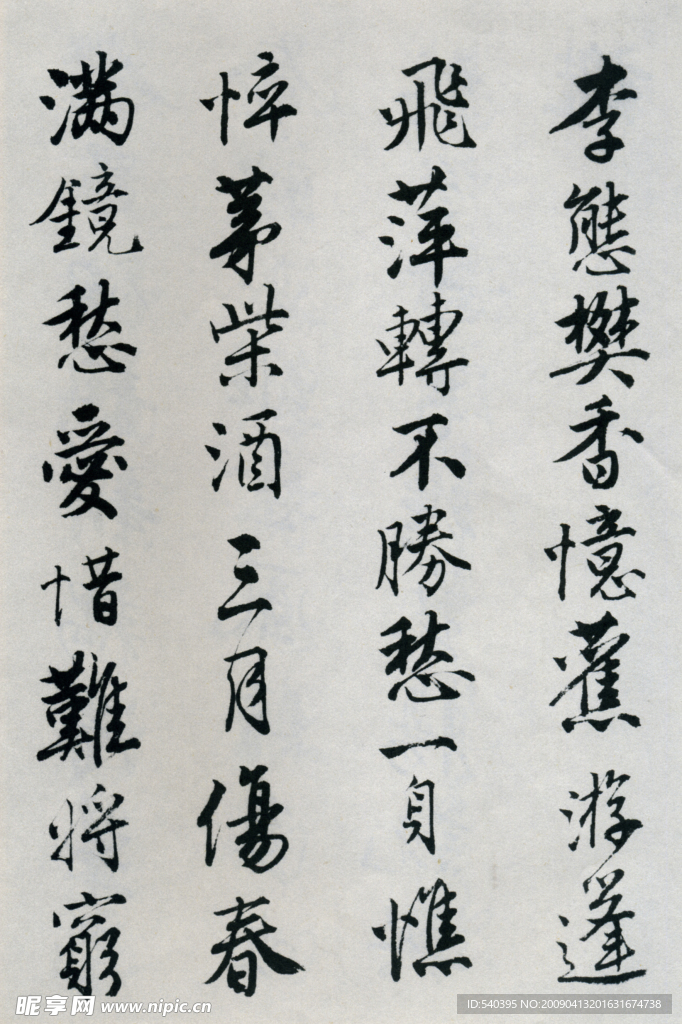 李態樊香憶舊游蓬
飛萍轉不勝愁一身憔
悴茅柴酒三月傷春
滿鏡愁愛惜難將窮
昵享网 www.nipic.cn
ID:540395 NO:20090413201631674738